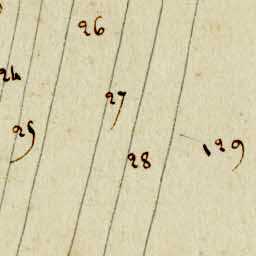 26
24
27
25
28
129